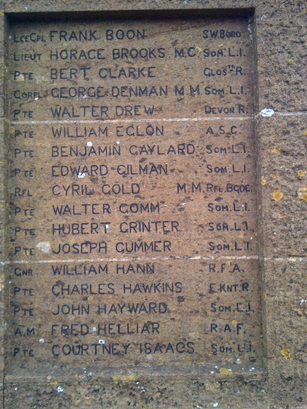 LCE CPL FRANK BOON S.W. BORD
LIEUT HORACE BROOKS M.C. SOM. L.I.
PTE BERT CLARKE GLOS. R.
CORPL GEORGE DENMAN M.M. SOM. L.I.
PTE WALTER DREW DEVON R.
PTE WILLIAM EGLON A.S.C
PTE BENJAMIN GAYLARD SOM. L.I.
PTE EDWARD GILMAN SOM. L.I.
RFL CYRIL GOLD M.M. RFL BGDE
PTE WALTER GOMM SOM. L.I.
PTE HUBERT GRINTER SOM. L.I.
PTE JOSEPH GUMMER SOM. L.I.
GNR WILLIAM HANN R.F.A.
PTE CHARLES HAWKINS E. KNT. R
PTE JOHN HAYWARD SOM. L.I.
A.M. FRED HELLIAR R.A.F.
PTE COURTNEY ISAACS SOM. L.I.